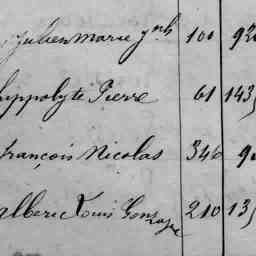 Julien Marie Jph 100 92
hyppolyte Pierre 61 143
françois Nicolas 346 9
alberic Louis Gonzague 210 13